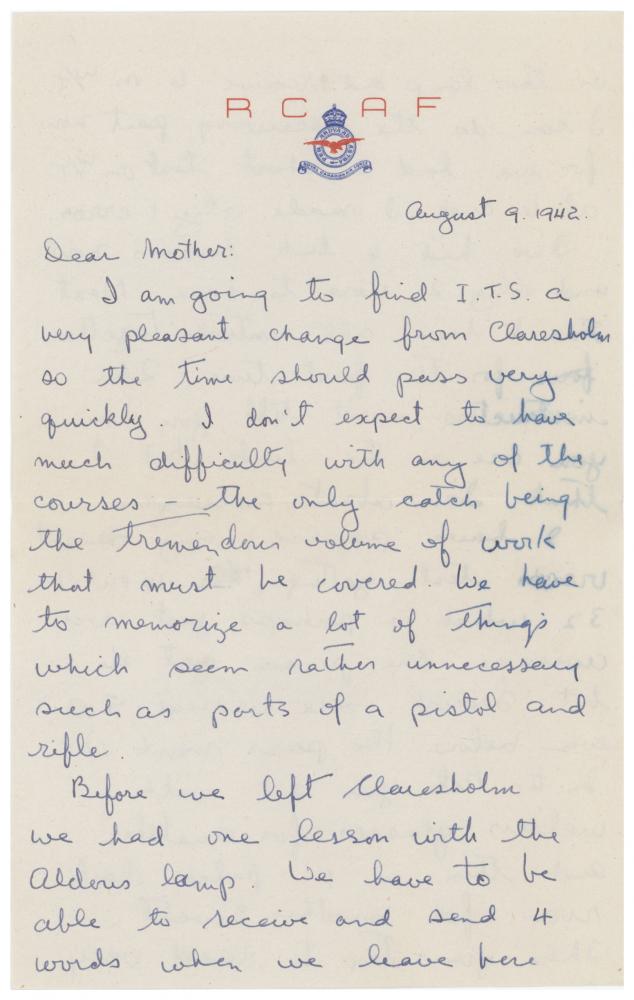 RCAF
ROYAL CANADIAN AIR FORCE
August 9. 1942.
Dear Mother:
I am going to find I.T.S. a
very pleasant change from Claresholm
so the time should pass very
quickly. I don't expect to have
much difficulty with any of the
courses – the only catch being
the tremendous volume of work
that must be covered. We have
to memorize a lot of things
which seem rather unnecessary
such as parts of a pistol and
rifle.
Before we left Claresholm
we had one lesson with the
Aldous lamp. We have to be
able to receive and send 4
words when we leave here